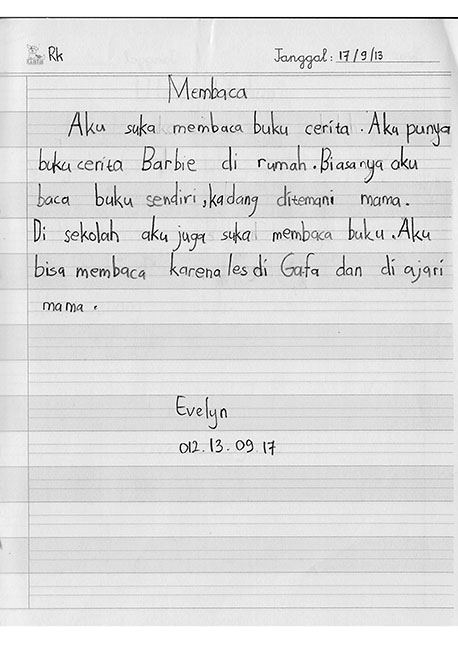 Gafa Rk Tanggal : 17/9/13
Membaca
Aku suka membaca buku cerita . Aku punya
buku cerita Barbie di rumah . Biasanya aku
baca buku sendiri , kadang ditemani mama .
Di sekolah aku juga suka membaca buku . Aku
bisa membaca karena les di Gafa dan di ajari
mama .
Evelyn
012 . 13 . 09 17